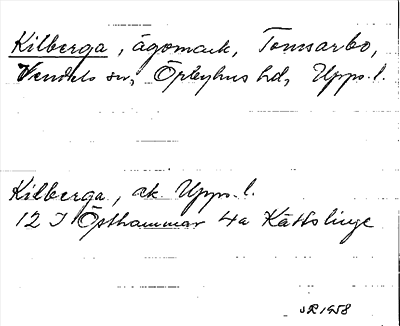 Kilberga, ägomark, Tomsarbo,
Vendels sn, Örbyhus hd, Upps. l.
Kilberga, ek. Upps. l.
12 I Östhammar 4a Kättslinge
JR 1958